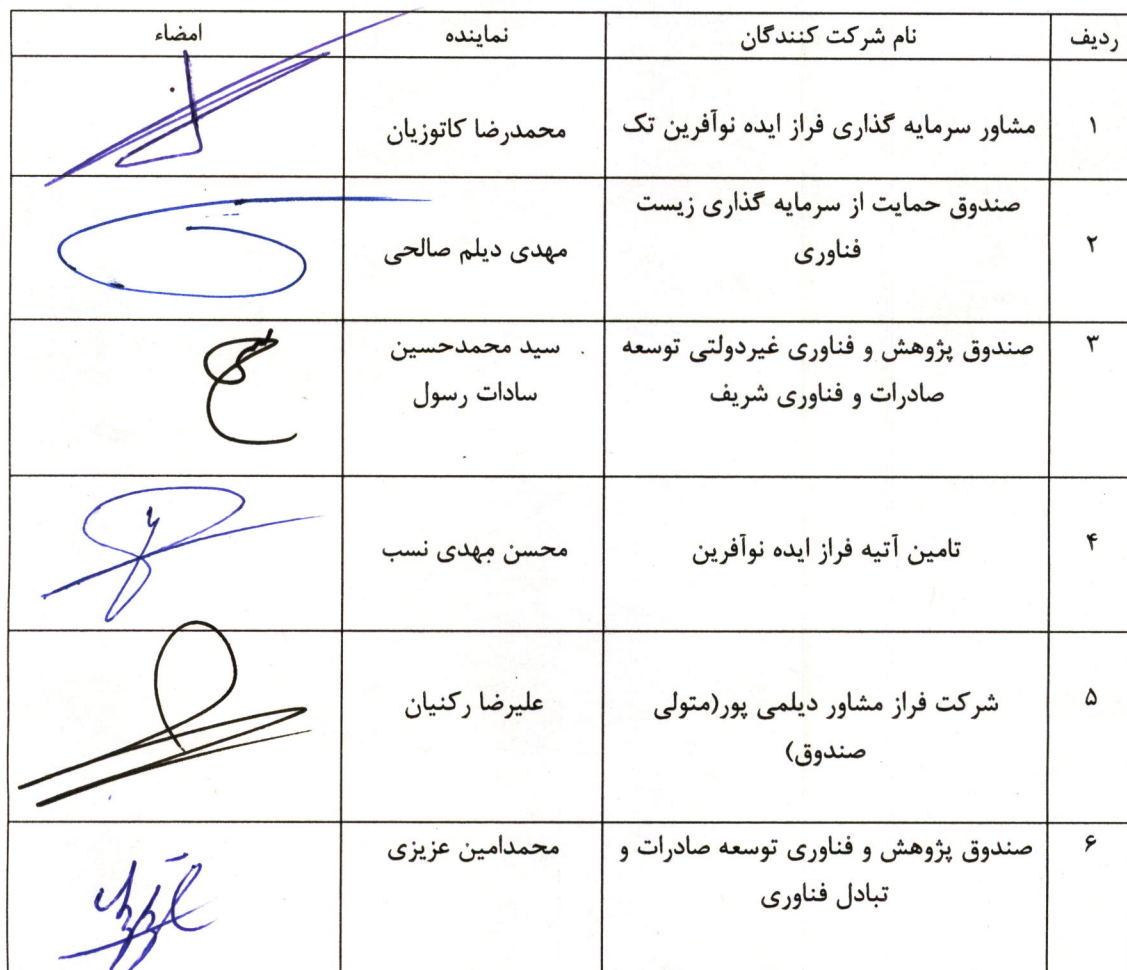 ردیف نام شرکت کنندگان نماینده امضاء
۱ مشاور سرمایه گذاری فراز ایده نوآفرین تک محمدرضا کاتوزیان
صندوق حمایت از سرمایه گذاری زیست
۲ فناوری مهدی دیلم صالحی
۳ صندوق پژوهش و فناوری غیردولتی توسعه سید محمدحسین
صادرات و فناوری شریف سادات رسول
۴ تامین آتیه فراز ایده نوآفرین محسن مهدی نسب
۵ شرکت فراز مشاور دیلمی پور(متولی علیرضا رکنیان
صندوق)
۶ صندوق پژوهش و فناوری توسعه صادرات و محمدامین عزیزی
تبادل فناوری